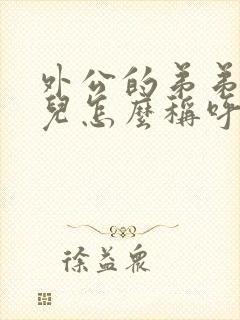 外公的弟弟
兒怎麼稱呼
徐益眾